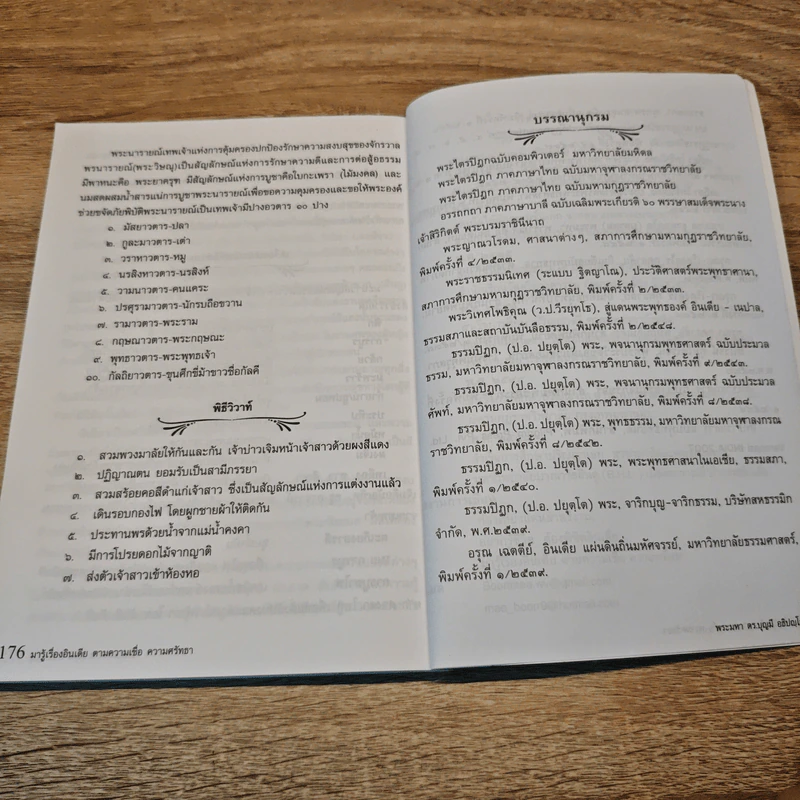 พระนารายณ์เทพเจ้าแห่งการคุ้มครองปกป้องรักษาความสงบสุขของจักรวาล
พรนารายณ์(พระวิษณุ)เป็นสัญลักษณ์แห่งการรักษาความดีและการต่อสู้อธรรม
มีพาหนะคือ พระยาครุฑ มีสัญลักษณ์แห่งการบูชาคือใบกะเพรา (ไม้มงคล) และ
นมสดผสมน้ำสารแน่การบูชาพระนารายณ์เพื่อขอความคุมครองและขอให้พระองค์
ช่วยขจัดภัยพิบัติพระนารายณ์เป็นเทพเจ้ามีปางอวตาร ๑๐ ปาง
๑. มัสยาวตาร-ปลา
๒. กูละมาวตาร-เต่า
๓. วราหาวตาร-หมู
๔. นรสิงหาวตาร-นรสิงห์
๕. วามนาวตาร-คนแคระ
๖. ปรศุรามาวตาร-นักรบถือขวาน
๗. รามาวตาร-พระราม
๘. กฤษณาวตาร-พระกฤษณะ
๙. พุทธาวตาร-พระพุทธเจ้า
๑๐. กัลถิยาวตาร-ขุนศึกขี่ม้าขาวชื่อกัลคี
พิธีวิวาห์
๑. สวมพวงมาลัยให้กันและกัน เจ้าบ่าวเจิมหน้าเจ้าสาวด้วยผงสีแดง
๒. ปฏิญาณตน ยอมรับเป็นสามีภรรยา
๓. สวมสร้อยคอสีดำแก่เจ้าสาว ซึ่งเป็นสัญลักษณ์แห่งการแต่งงานแล้ว
๔. เดินรอบกองไฟ โดยผูกชายผ้าให้ติดกัน
๕. ประทานพรด้วยน้ำจากแม่น้ำคงคา
๖. มีการโปรยดอกไม้จากญาติ
๗. ส่งตัวเจ้าสาวเข้าห้องหอ
176 มารู้เรื่องอินเดีย ตามความเชื่อ ความศรัทธา
บรรณานุกรม
พระไตรปิฎกฉบับคอมพิวเตอร์ มหาวิทยาลัยมหิดล
พระไตรปิฎก ภาคภาษาไทย ฉบับมหาจุฬาลงกรณราชวิทยาลัย
พระไตรปิฎก ภาคภาษาไทย ฉบับมหามกุฏราชวิทยาลัย
อรรถกถา ภาคภาษาบาลี ฉบับเฉลิมพระเกียรติ ๖๐ พรรษาสมเด็จพระนาง
เจ้าสิริกิตต์ พระบรมราชินีนาถ
พระญาณวโรดม, ศาสนาต่างๆ, สภาการศึกษามหามกุฏราชวิทยาลัย,
พิมพ์ครั้งที่ ๔/๒๕๓๓.
พระราชธรรมนิเทศ (ระแบบ ฐิตญาโณ), ประวัติศาสตร์พระพุทธาศานา,
สภาการศึกษามหามกุฏราชวิทยาลัย, พิมพ์ครั้งที่ ๒/๒๕๓๓.
พระวิเทศโพธิคุณ (ว.ป.วีรยุทฺโธ), สู่แดนพระพุทธองค์ อินเดีย - เนปาล,
ธรรมสภาและสถาบันบันลือธรรม, พิมพ์ครั้งที่ ๒/๒๕๔๘.
ธรรมปิฎก, (ป.อ. ปยุตฺโต) พระ, พจนานุกรมพุทธศาสตร์ ฉบับประมวล
ธรรม, มหาวิทยาลัยมหาจุฬาลงกรณราชวิทยาลัย, พิมพ์ครั้งที่ ๙/๒๕๔๓.
ธรรมปิฎก, (ป.อ. ปยุตฺโต) พระ, พจนานุกรมพุทธศาสตร์ ฉบับประมวล
ศัพท์, มหาวิทยาลัยมหาจุฬาลงกรณราชวิทยาลัย, พิมพ์ครั้งที่ ๘/๒๕๓๘.
ธรรมปิฎก, (ป.อ. ปยุตฺโต) พระ, พุทธธรรม, มหาวิทยาลัยมหาจุฬาลงกรณ
ราชวิทยาลัย, พิมพ์ครั้งที่ ๘/๒๕๔๒.
ธรรมปิฎก, (ป.อ. ปยุตฺโต) พระ, พระพุทธศาสนาในเอเชีย, ธรรมสภา,
พิมพ์ครั้งที่ ๑/๒๕๔๐.
ธรรมปิฎก, (ป.อ. ปยุตฺโต) พระ, จาริกบุญ-จาริกธรรม, บริษัทสหธรรมิก
จำกัด, พ.ศ.๒๕๓๙.
อรุณ เฉตตีย์, อินเดีย แผ่นดินถิ่นมหัศจรรย์, มหาวิทยาลัยธรรมศาสตร์,
พิมพ์ครั้งที่ ๑/๒๕๓๙.
พระมหา ดร.บุญมี